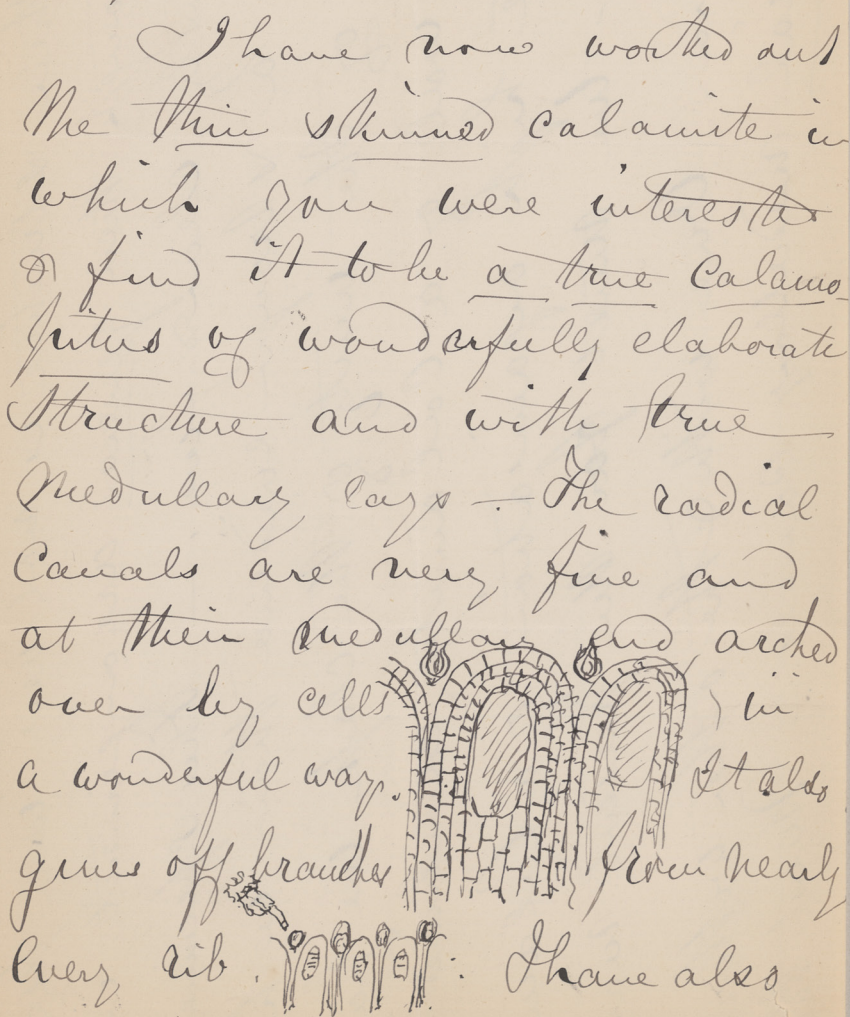 I have now worked out
the thin skinned calamite in
which you were interested
& find it to be a true Calamo-
pitus of wonderfully elaborate
structure and with true
medullary rays — The radial
Canals are very fine and
at their medullary end arched
over by cells ) in
a wonderful way. It also
gives off branches from nearly
every rib. I have also